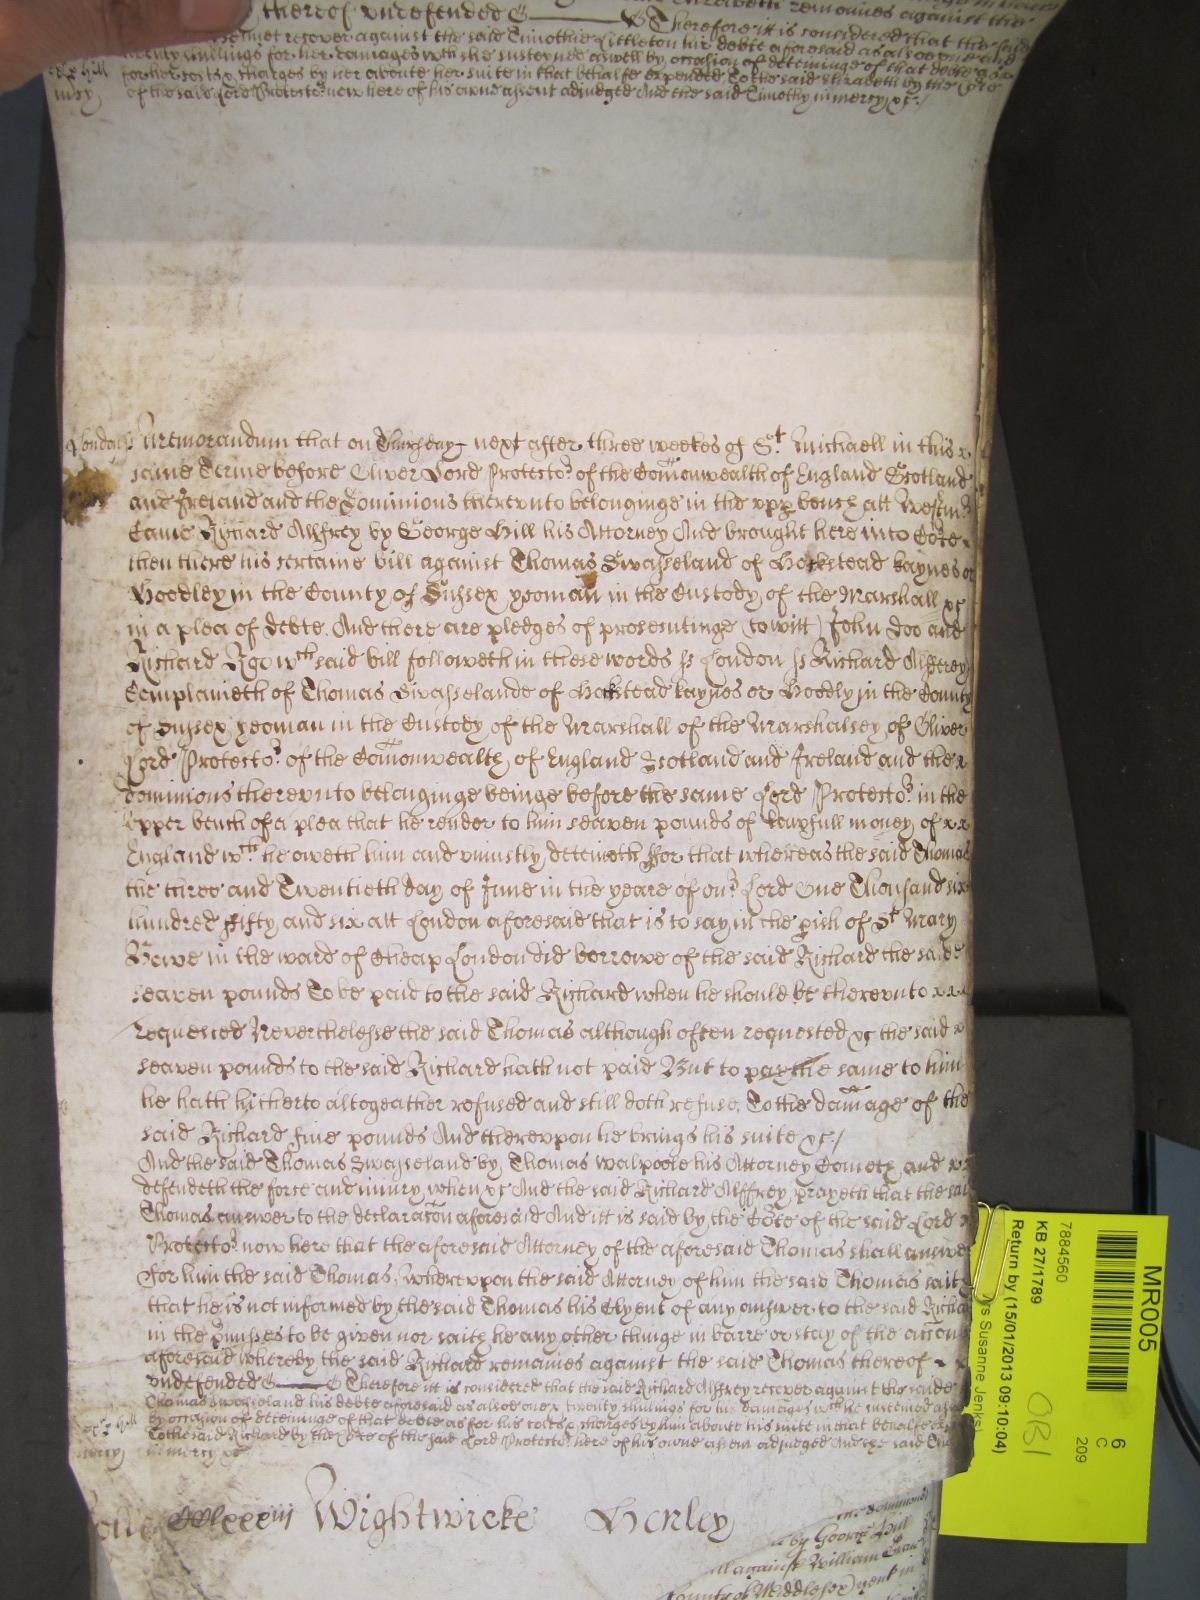 thereof undefended Therefore it is considered that the said
recover against the said Timothie Littleton her debte aforesaid as alsoe one and
twenty shillings for her damages wch she susteyned aswell by occasion of deteininge of that debte as
for her costs & charges by her aboute her suite in that behalfe expended To the said Elizabeth by the Cōte
of the said Lord Protector now here of his owne assent adjudged And the said Timothy in mercy &c./
mcy
London ss Memorandum that on Thursday next after three weekes of St Michaell in this x
same Terme before Oliver Lord Protector of the Comonwealth of England Scotland
and Ireland and the Dominions thereunto belonginge in the upp bench att Westmr
Came Richard Alffrey by George Hill his Attorney And brought here into Cote
then there his certaine bill against Thomas Swasseland of Horkstead kaynes or
Hoodley in the County of Sussex yeoman in the Custody of the Marshall &c
in a plea of debte. And there are pledges of prosecutinge (to witt) John Doo and
Richard Roo wch said bill followeth in these words ss London ss Richard Alffrey
Complaineth of Thomas Swasselande of Horkstead kaynes or Hoodly in the County
of Sussex yeoman in the Custody of the Marshall of the Marshalsey of Oliver
Lord Protector of the Comonwealth of England Scotland and Ireland and the x
dominions thereunto belonginge beinge before the same Lord Protector in the
Upper bench of a plea that he render to him seaven pounds of lawfull money of x x
England wch he oweth him and uniustly deteineth For that whereas the said Thomas
the three and Twentieth day of June in the yeare of our Lord One Thousand six
hundred Fifty and six att London aforesaid that is to say in the pish of St Mary
Bowe in the ward of Cheap London did borrowe of the said Richard the saide
seaven pounds To be paid to the said Richard when he should be thereunto x x x
requested Neverthelesse the said Thomas although often requested &c the said x
seaven pounds to the said Richard hath not paid But to pay the same to him
he hath hitherto altogeather refused and still doth refuse, To the damage of the
said Richard five pounds And thereupon he brings his suite &c./
And the said Thomas Swasseland by Thomas Walpoole his Attorney Cometh and
defendeth the force and iniury when &c And the said Richard Alffrey prayeth that the said
Thomas answer to the declaracon aforesaid And itt is said by the Cote of the said Lord x
Protector now here that the aforesaid Attorney of the aforesaid Thomas shall answer
for him the said Thomas, Whereupon the said Attorney of him the said Thomas saith
that he is not informed by the said Thomas his Clyent of any answer to the said Richard
in the pmisses to be given nor saith he any other thinge in barre or stay of the accon
aforesaid whereby the said Richard remaines against the said Thomas thereof
undefended Therefore itt is considered that the said Richard Alffrey recover against the saide
Thomas Swasseland his debte aforesaid as alsoe one x twenty shillings for his damages wch he susteined
by occasion of deteininge of that debte as for his costs & charges by him aboute his suite in that behalfe
To the said Richard by the Cote of the said Lord Protector here of his owne assent adjudged And the said
in mercy &c
mercy
Wightwicke Henley
by George Hill
against William
County of Middlesex gent in
MR005
6
C
209
7884560
KB 27/1789
Return by (15/01/2013 09:10:04)
Susanne Jenks)